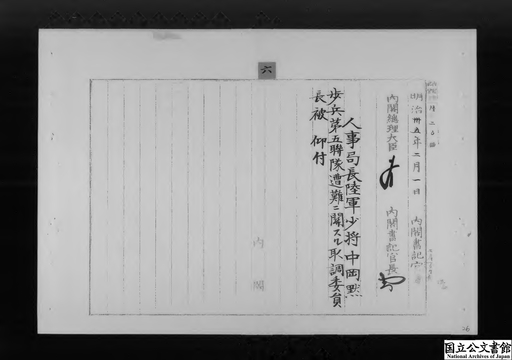 六
明治卅五年二月一日
内閣書記官
内閣総理大臣
内閣書記官長
人事局長陸軍少将中岡黙
歩兵第五聯隊遭難ニ関スル取調委員
長被 仰付
内閣
国立公文書館
National Archives of Japan